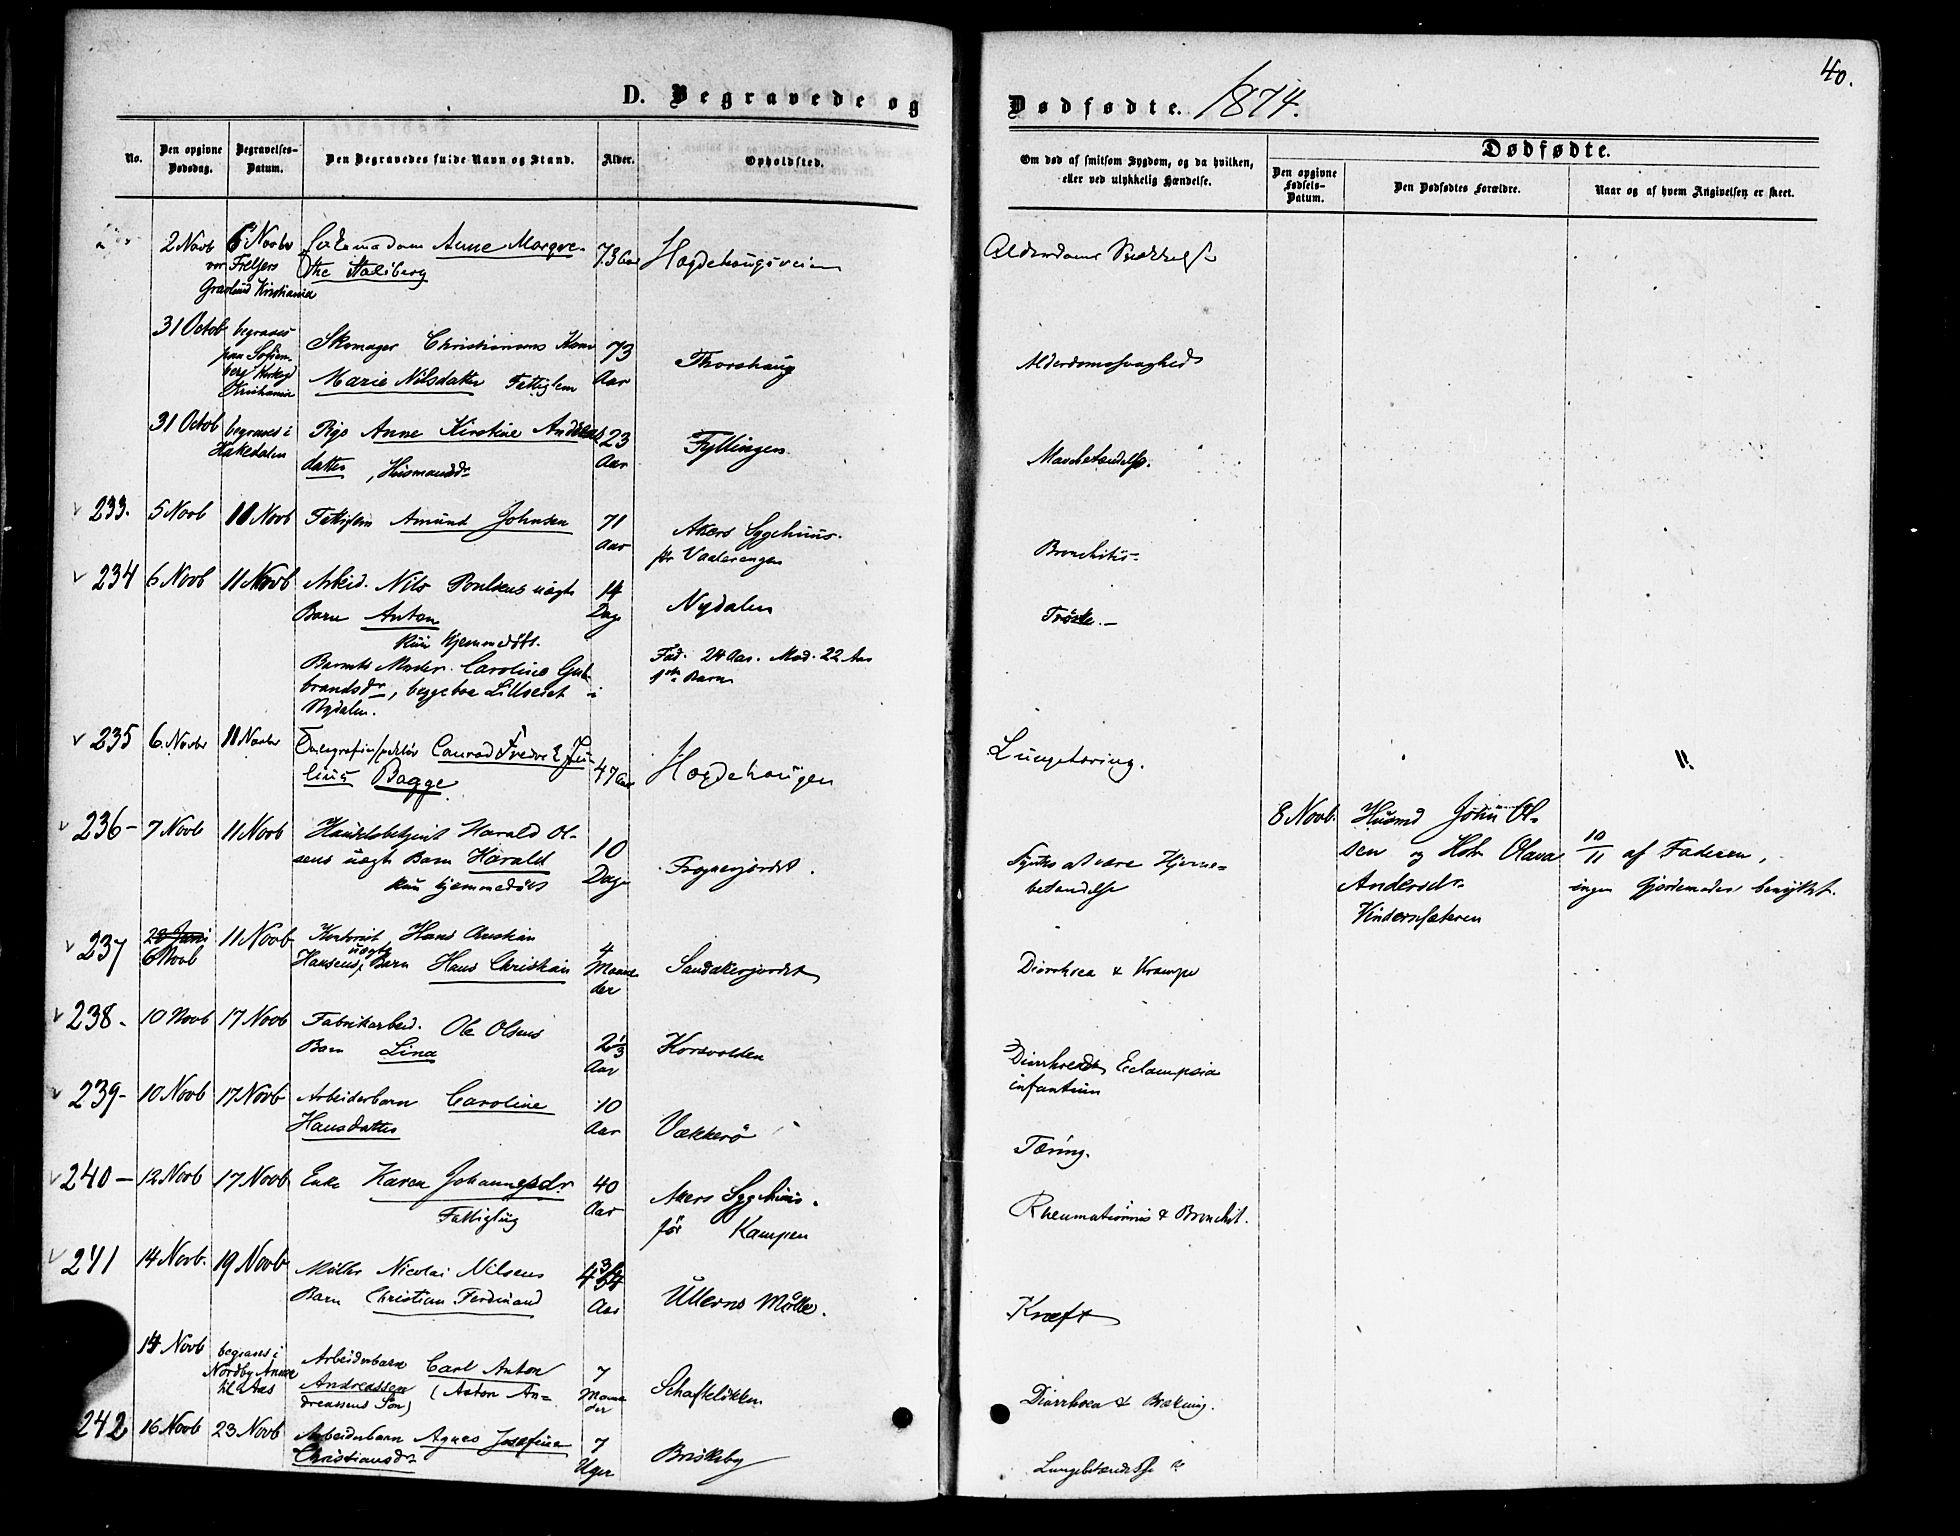 40.
D. Begravede og
Dødfødte. 1874.
No.
Den opgivne Dødsdag.
Begravelses-Datum.
Den Begravedes fulde Navn og Stand.
Alder.
Opholdsted.
Om død af smitsom Sygdom, og da hvilken,
eller ved ulykkelig Hændelse.
Dødfødte.
Den opgivne Fødsels-Datum.
Den Dødfødtes Forældre.
Naar og af hvem Angivelsen er skeet.
2 Novb 6 Novbr Anne Margre-
vor Frelsers
the Stalsberg
Gravlund Kristiania
73 Aar
Hægdehaugsveien
Alderdoms Svækkelse
31 Octob begraves
paa Sofien-
berg Kirkegd
Kristiania
Skomager Christiansens Kone
Marie Nilsdatter Fattiglem
73
Aar
Thorshaug
Alderdomssvaghed
31 Octob begraves i
Hakedalen
Pige Anne Kirstine Anders
datter , Husmandsdr
23
Aar
Fyllingen
Mavebetændelse.
233. 5 Novb 11 Novb Fattiglem Amund Johnsen
71
Aar
Akers Sygehuus.
før Vaalerengen
Bronchitis
234 6 Novb 11 Novb Arbeid. Nils Poulsens uægte
Barn Anton
kun hjemmedøbt.
Barnets Moder. Caroline Gul-
brandsdr, begge boe Lillseiet i
Nydalen.
14
Dage
Nydalen
Fad. 24 Aar. Mod. 22 Aar
1ste Barn
Trøske.
235 6 Novbr 11 Novbr Conrad Fredrik Ju-
lius Bagge
47 Aar
Hægdehaugen
Lungetæring.
236 - 7 Novb 11 Novb Handelsbetjent Harald Ol-
sens uægte Barn Harald
kun hjemmedøbt
10
Dage
Frognerjordet.
Synes at være Hjerne-
betændelse
8 Novb. Husmd John Ol-
sen og Hstr Olava
Andersdr
10/11 af Faderen,
ingen Gjordemoder benyttet.
237 28 Juni
6 Novb
11 Novb
Hans Christian
Hansens uægte Barn Hans Christian
4
Maane
der
Sandakerjordet
Diarrhoea & Krampe
238. 10 Novb 17 Novb Fabrikarbeid. Ole Olsens
Barn Lina
2 1/3
Aar
Korsvolden
Eclampsia
infantum
239- 10 Novb 17 Novb Arbeiderbarn Caroline
Hansdatter
10
Aar
Vækkerö
Tæring.
240 - 12 Novb 17 Novb Enke Karen Johannesdr.
Fattiglem
40
Aar
Akers Sygehuus.
før Kampen
Rheumatismus & Bronchit.
241 14 Novb. 19 Novb Møller Nicolai Nilsens
Barn Christian Ferdinand
4 3/4
Aar
Ullerns Mølle.
Kræft
14 Novb begraves i
Nordby Annex
til Aas
Arbeiderbarn Carl Anton
Andreassen (Anton An-
dreassens Søn)
7
Maane
der
Schafteløkken
Diarrhoea & Brækning.
242 16 Novb 23 Novb Arbeiderbarn Agnes Josefine
Christiansdr
7
Uger
Briskeby
Lungebetændelse